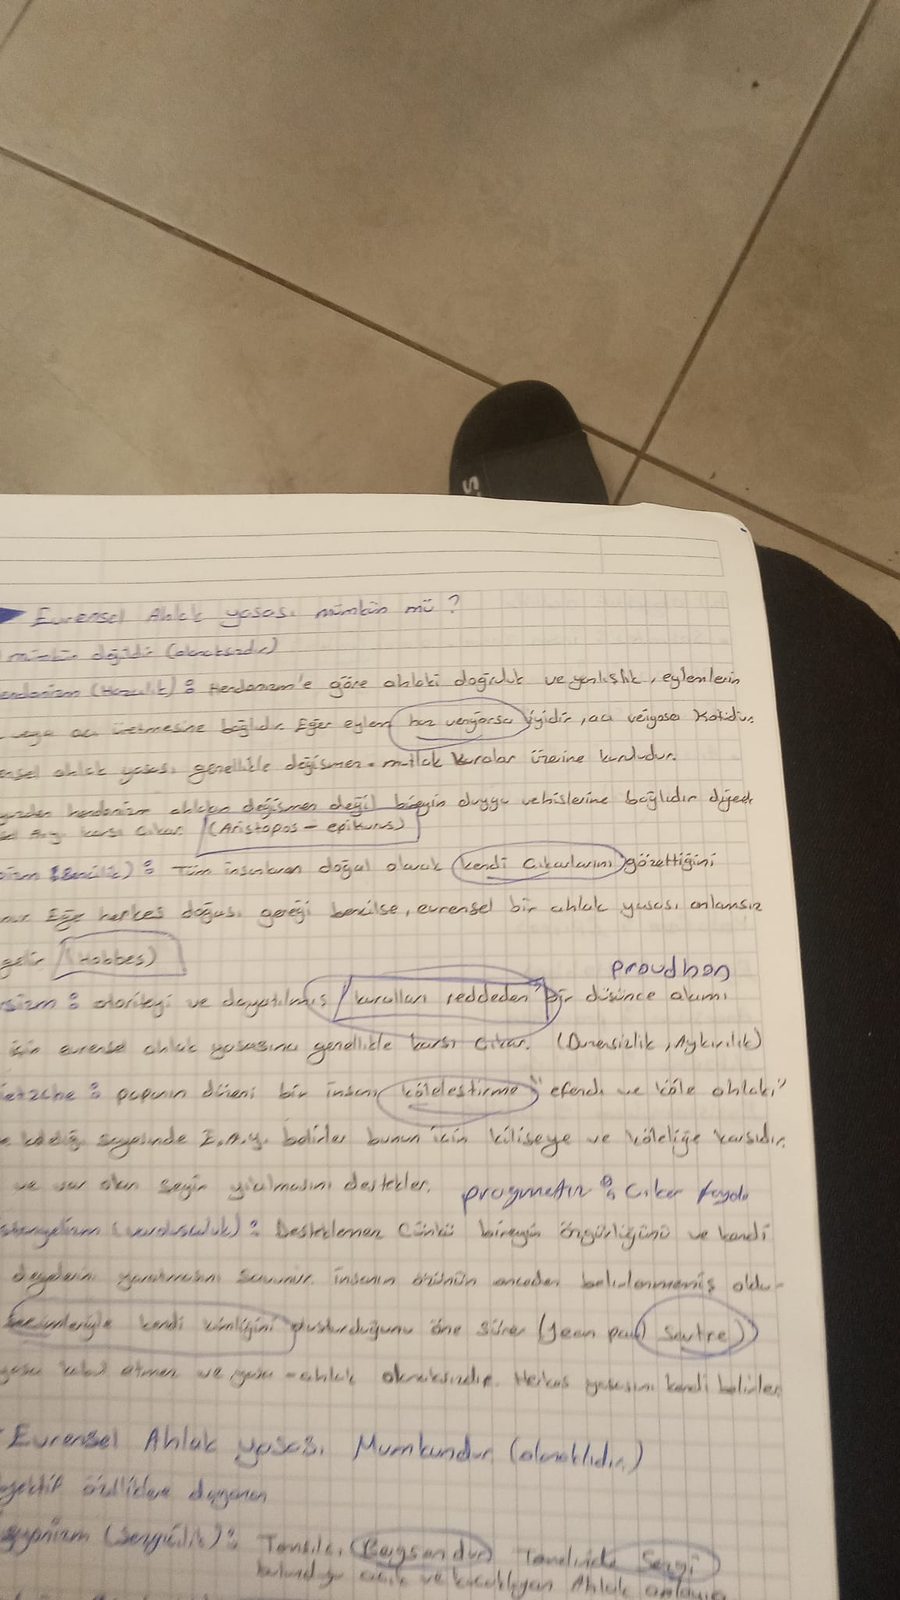 Evrensel Ahlak yasası mümkün mü?
mümkün değildir (olanaksızdır)
Herdonizm (Hazcılık): Herdonizm'e göre ahlaki doğruluk ve yanlışlık, eylemlerin
veya acı üretmesine bağlıdır. Eğer eylem haz veriyorsa iyidir, acı veriyosa Kötüdür.
ensel ahlak yasası genellikle değişmen - mutlak kuralar üzerine kuruludur.
yüzden herdonizm ahlakın değişmen değil bireyin duygu ve hislerine bağlıdır
karşı Çıkar (Aristopos - epikuros)
(Bencillik): Tüm insanların doğal olarak kendi Çıkarlarını gözettiğini
Eğer herkes doğası gereği bencilse, evrensel bir ahlak yasası anlamsız
gelir (Hobbes)
proudhon
otoriteyi ve dayatılmış kuralları reddeden bir düşünce akımı
için evrensel ahlak yasasına genellikle karşı Çıkar. (Düzensizlik, Aykırılık)
ietzche: düzeni bir insanı köleleştirme "efendi ve köle ahlakı"
E.A.y. belirler bunun için kiliseye ve köleliğe karşıdır.
ve var olan şeyin yıkılmasını destekler.
Çıkar fayda
(varoluşculuk): Desteklemez Çünkü bireyin özgürlüğünü ve kendi
değerlerini yaratmasını savunur. insanın özünün önceden belirlenmemiş oldu-
seçimleriyle kendi kimliğini oluşturduğunu öne Sürer (Jean paul Sartre)
yasa kabul etmez ve yasa - ahlak olanaksızdır. Herkes yasasını kendi belirler
Evrensel Ahlak yasası Mümkündür. (olanaklıdır.)
özelliklere dayanan
(Sezgicilik): Temsilci Bergsondur Temelinde Sezgi
bulunduğu açık ve Ahlak anlayışı